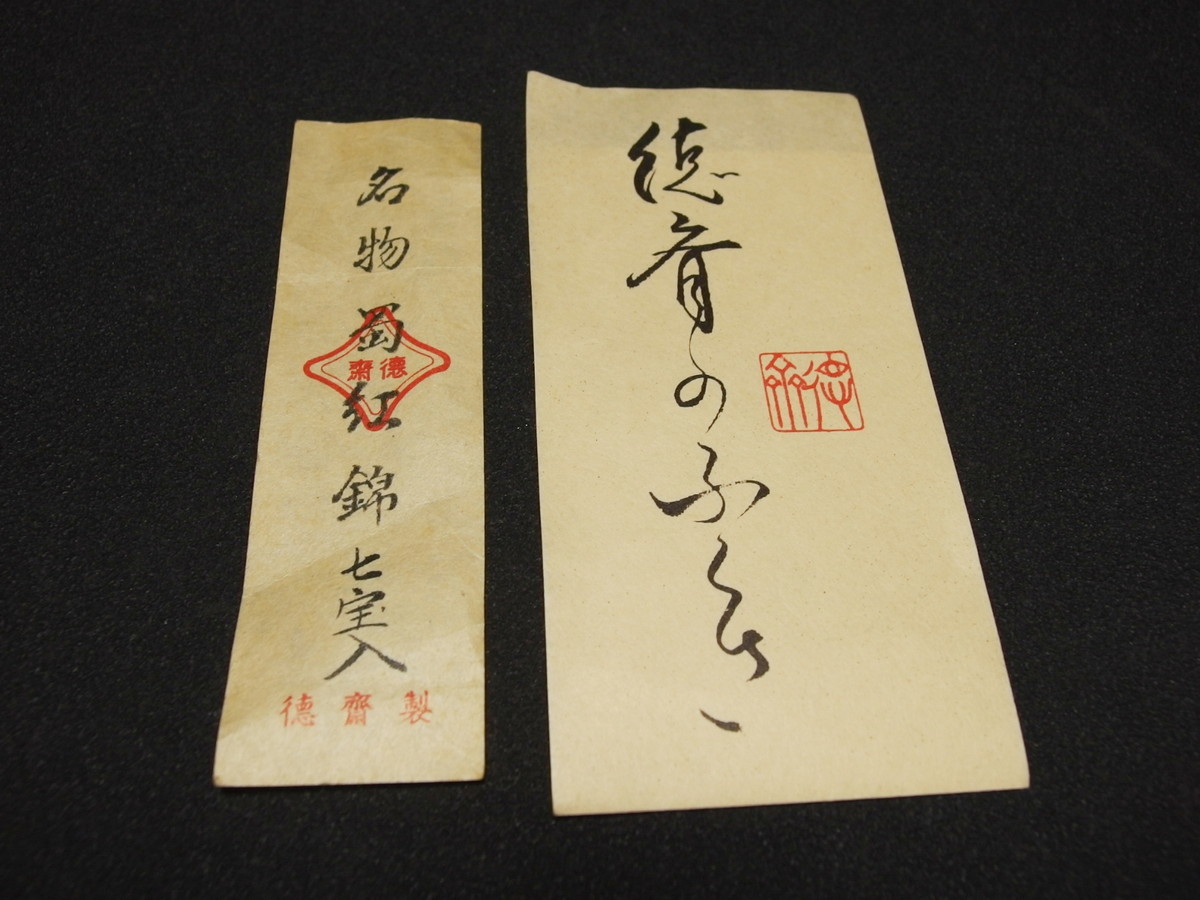 名物蜀紅錦七宝入
德齋
德齋製
徳斎のふくさ